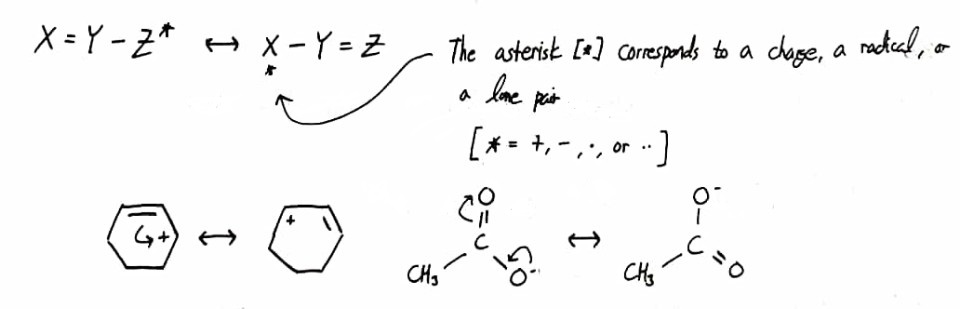 X = Y - Z* ↔ X - Y = Z
*
The asterisk [*] corresponds to a charge, a radical, or
a lone pair
[* = +, -, ·, or ··]
+ ↔ +
O
C
CH₃ O⁻
↔
O⁻
C
CH₃ O